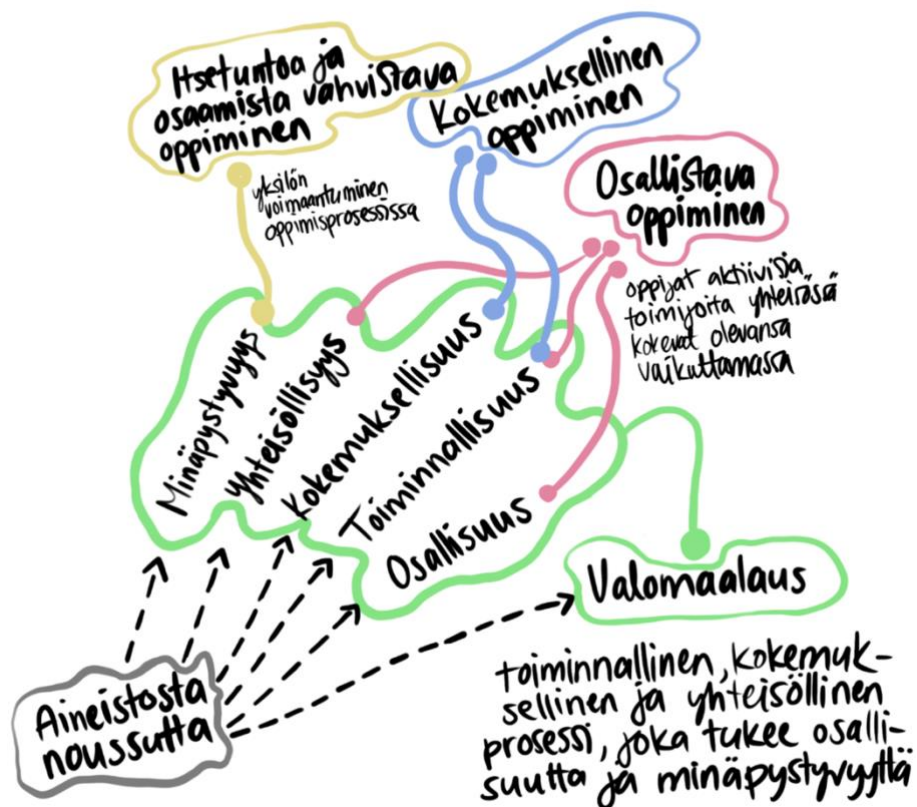 Itsetuntoa ja
osaamista vahvistava
oppiminen
Kokemuksellinen
oppiminen
Osallistava
oppiminen
yksilön
voimaantuminen
oppimisprosessissa
oppijat aktiivisia
toimijoita yhteisössä
kokevat olevansa
vaikuttamassa
Minäpystyvyys
Yhteisöllisyys
Kokemuksellisuus
Toiminnallisuus
Osallisuus
Valomaalaus
Aineistosta
noussutta
toiminnallinen, kokemuk-
sellinen ja yhteisöllinen
prosessi, joka tukee osalli-
suutta ja minäpystyvyyttä